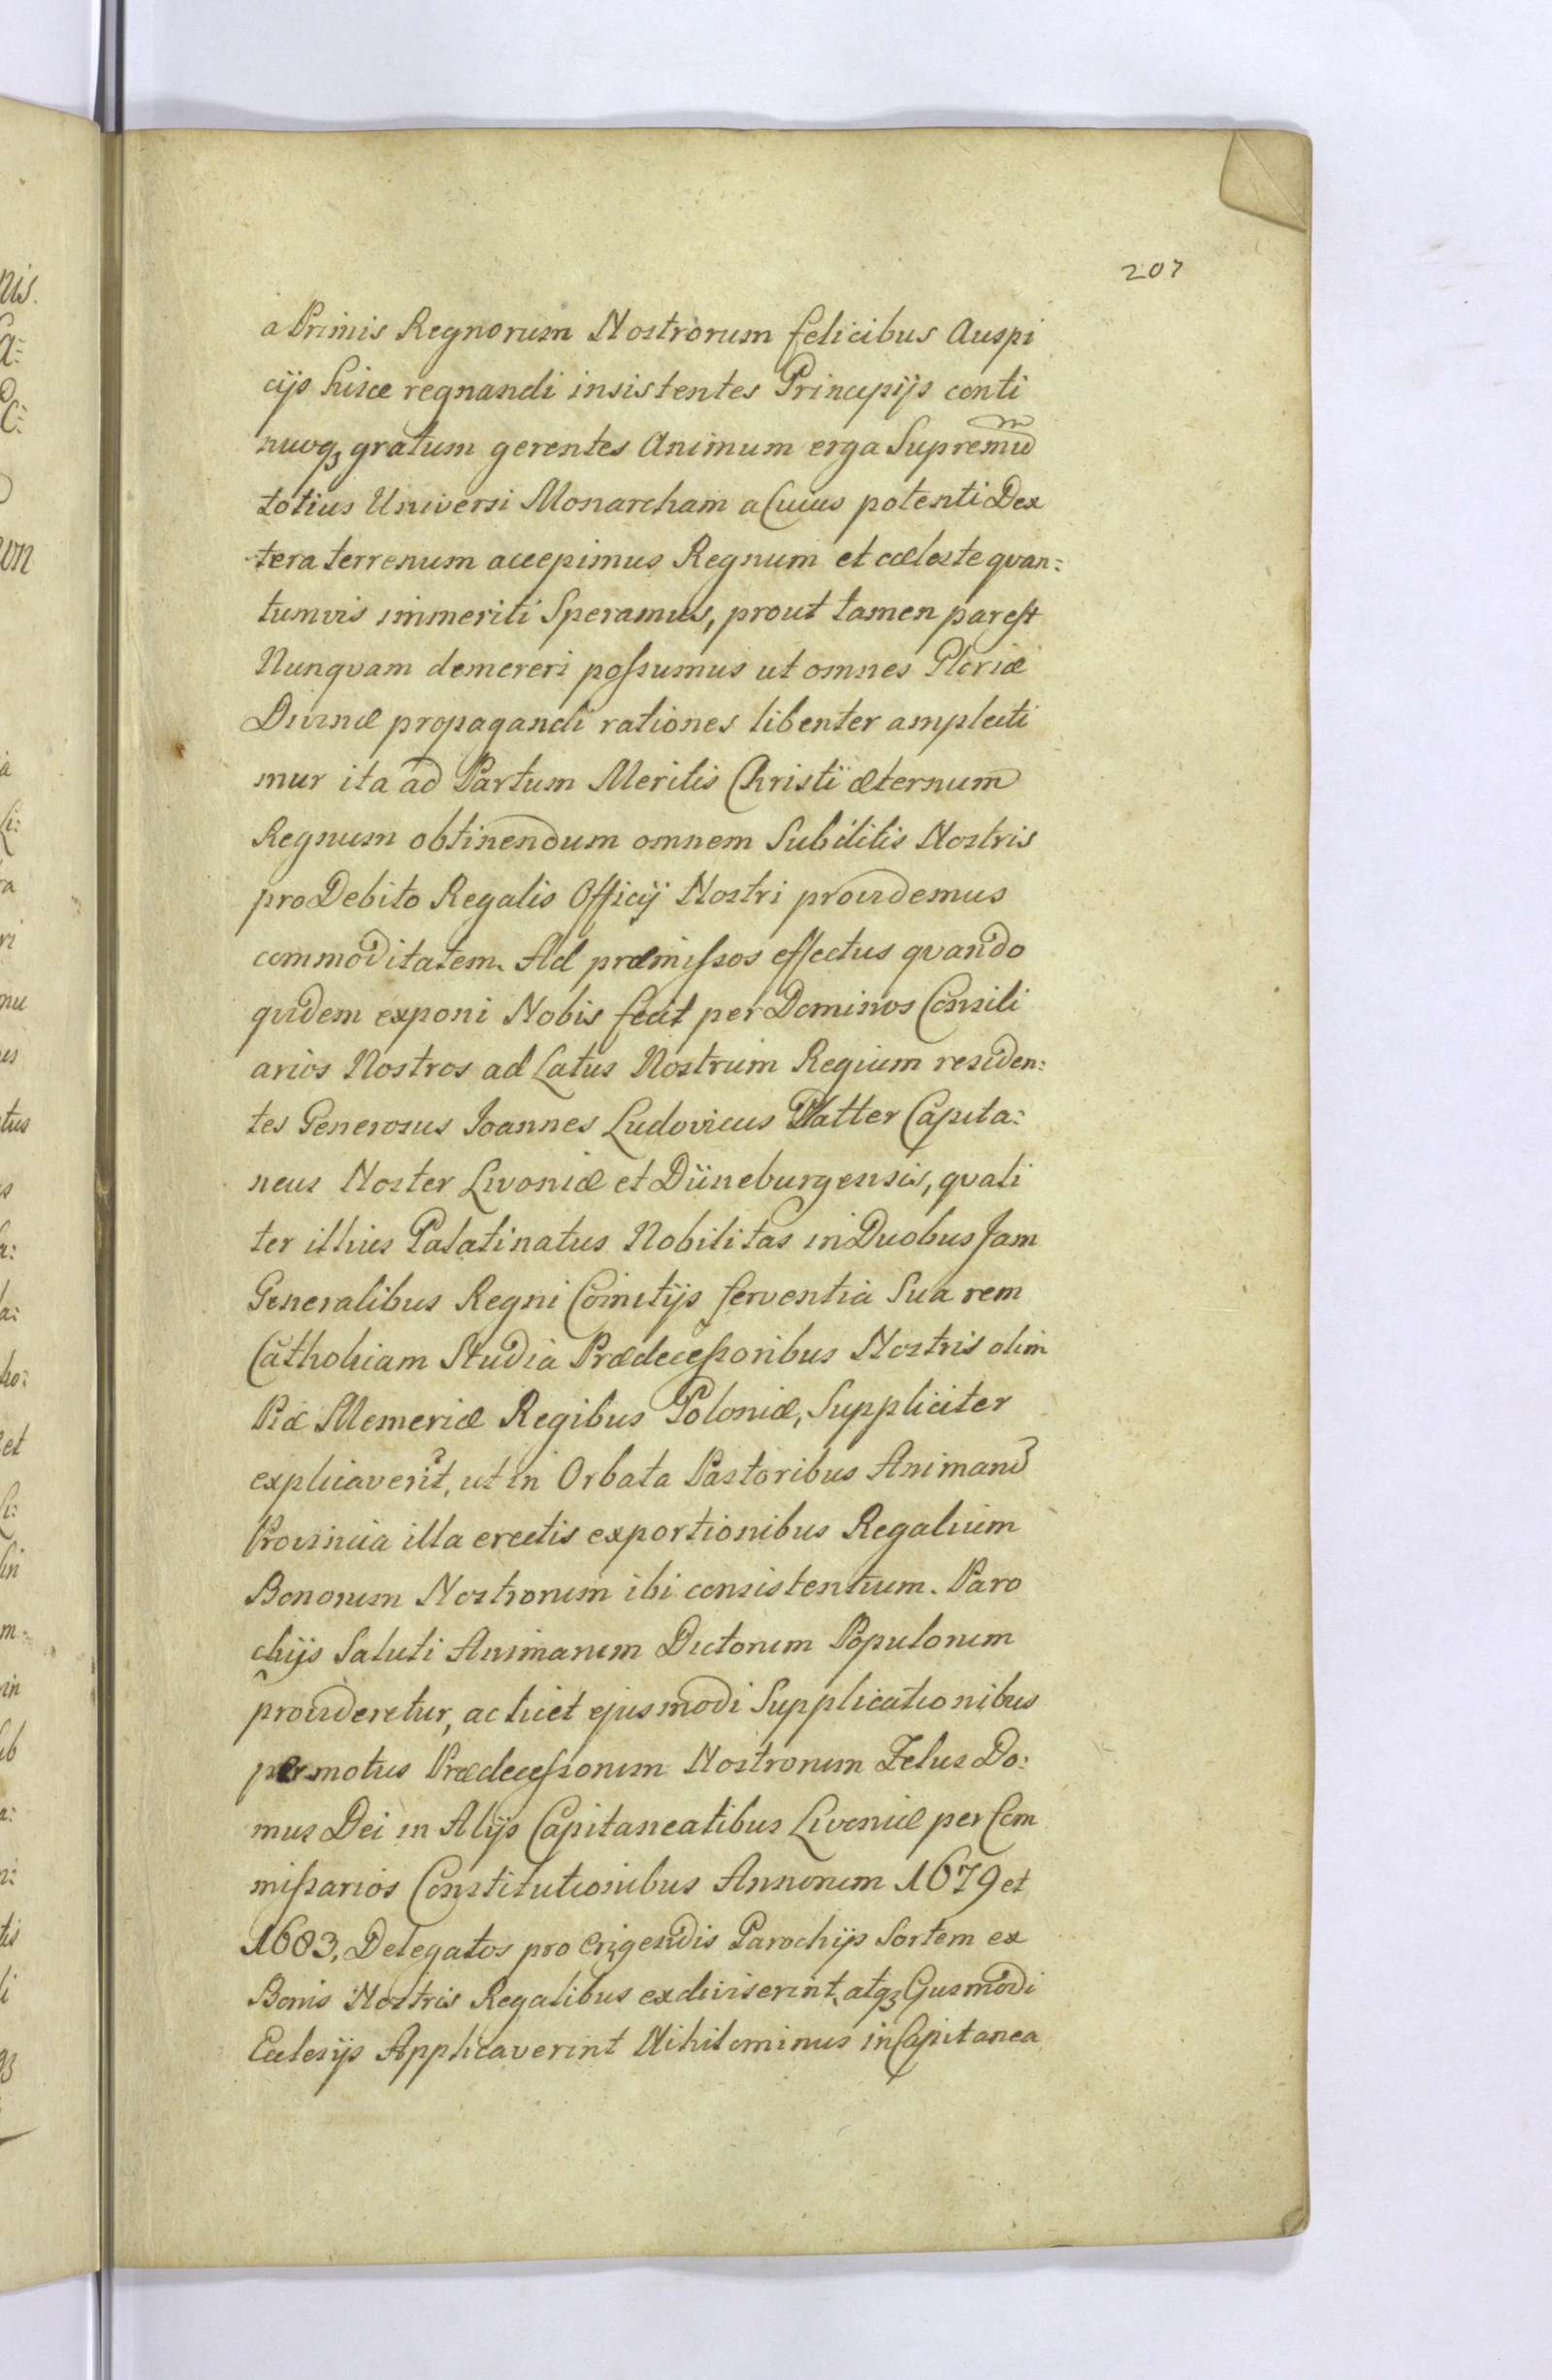 207
a Primis Regnorum Nostrorum felicibus Auspi
cijs hisce regnandi insistentes Principijs conti
nuoq₃ gratum gerentes Animum erga Supremũ
totius Universi Monarcham a Cuius potenti Dex
tera terrenum accepimus Regnum et cæleste qvan:
tumvis immeriti Speramus, prout tamen par est
Nunqvam demereri possumus ut omnes Gloriæ
Divinæ propagandi rationes libenter amplecti
mur ita ad Partum Meritis Christi æternum
Regnum obtinendum omnem Subditis Nostris
pro Debito Regalis Officij Nostri providemus
commoditatem. Ad præmissos effectus qvando
qvidem exponi Nobis fecit per Dominos Consili
arios Nostros ad Latus Nostrum Regium residen:
tes Generosus Joannes Ludovicus Platter Capita:
neus Noster Livoniæ et Düneburgensis, qvali
ter illius Palatinatus Nobilitas in Duobus Jam
Generalibus Regni Comitijs ferventia Sua rem
Catholicam Studia Prædecessoribus Nostris olim
Piæ Memeriæ Regibus Poloniæ, Suppliciter
explicaverit, ut in Orbata Pastoribus Animarũ
Provincia illa erectis exportionibus Regalium
Bonorum Nostrorum ibi consistentium. Paro
chijs Saluti Animarum Dictorum Populorum
provideretur, ac licet ejusmodi Supplicationibus
permotus Prædecessorum Nostrorum Zelus Do:
mus Dei in Alijs Capitaneatibus Livoniæ per Com
missarios Constitutionibus Annorum 1679 et
1683, Delegatos pro Erigendis Parochijs Sortem ex
Bonis Nostris Regalibus exdiviserint, atq₃ Ejusmodi
Eclesijs Applicaverint Nihilominus in Capitanea